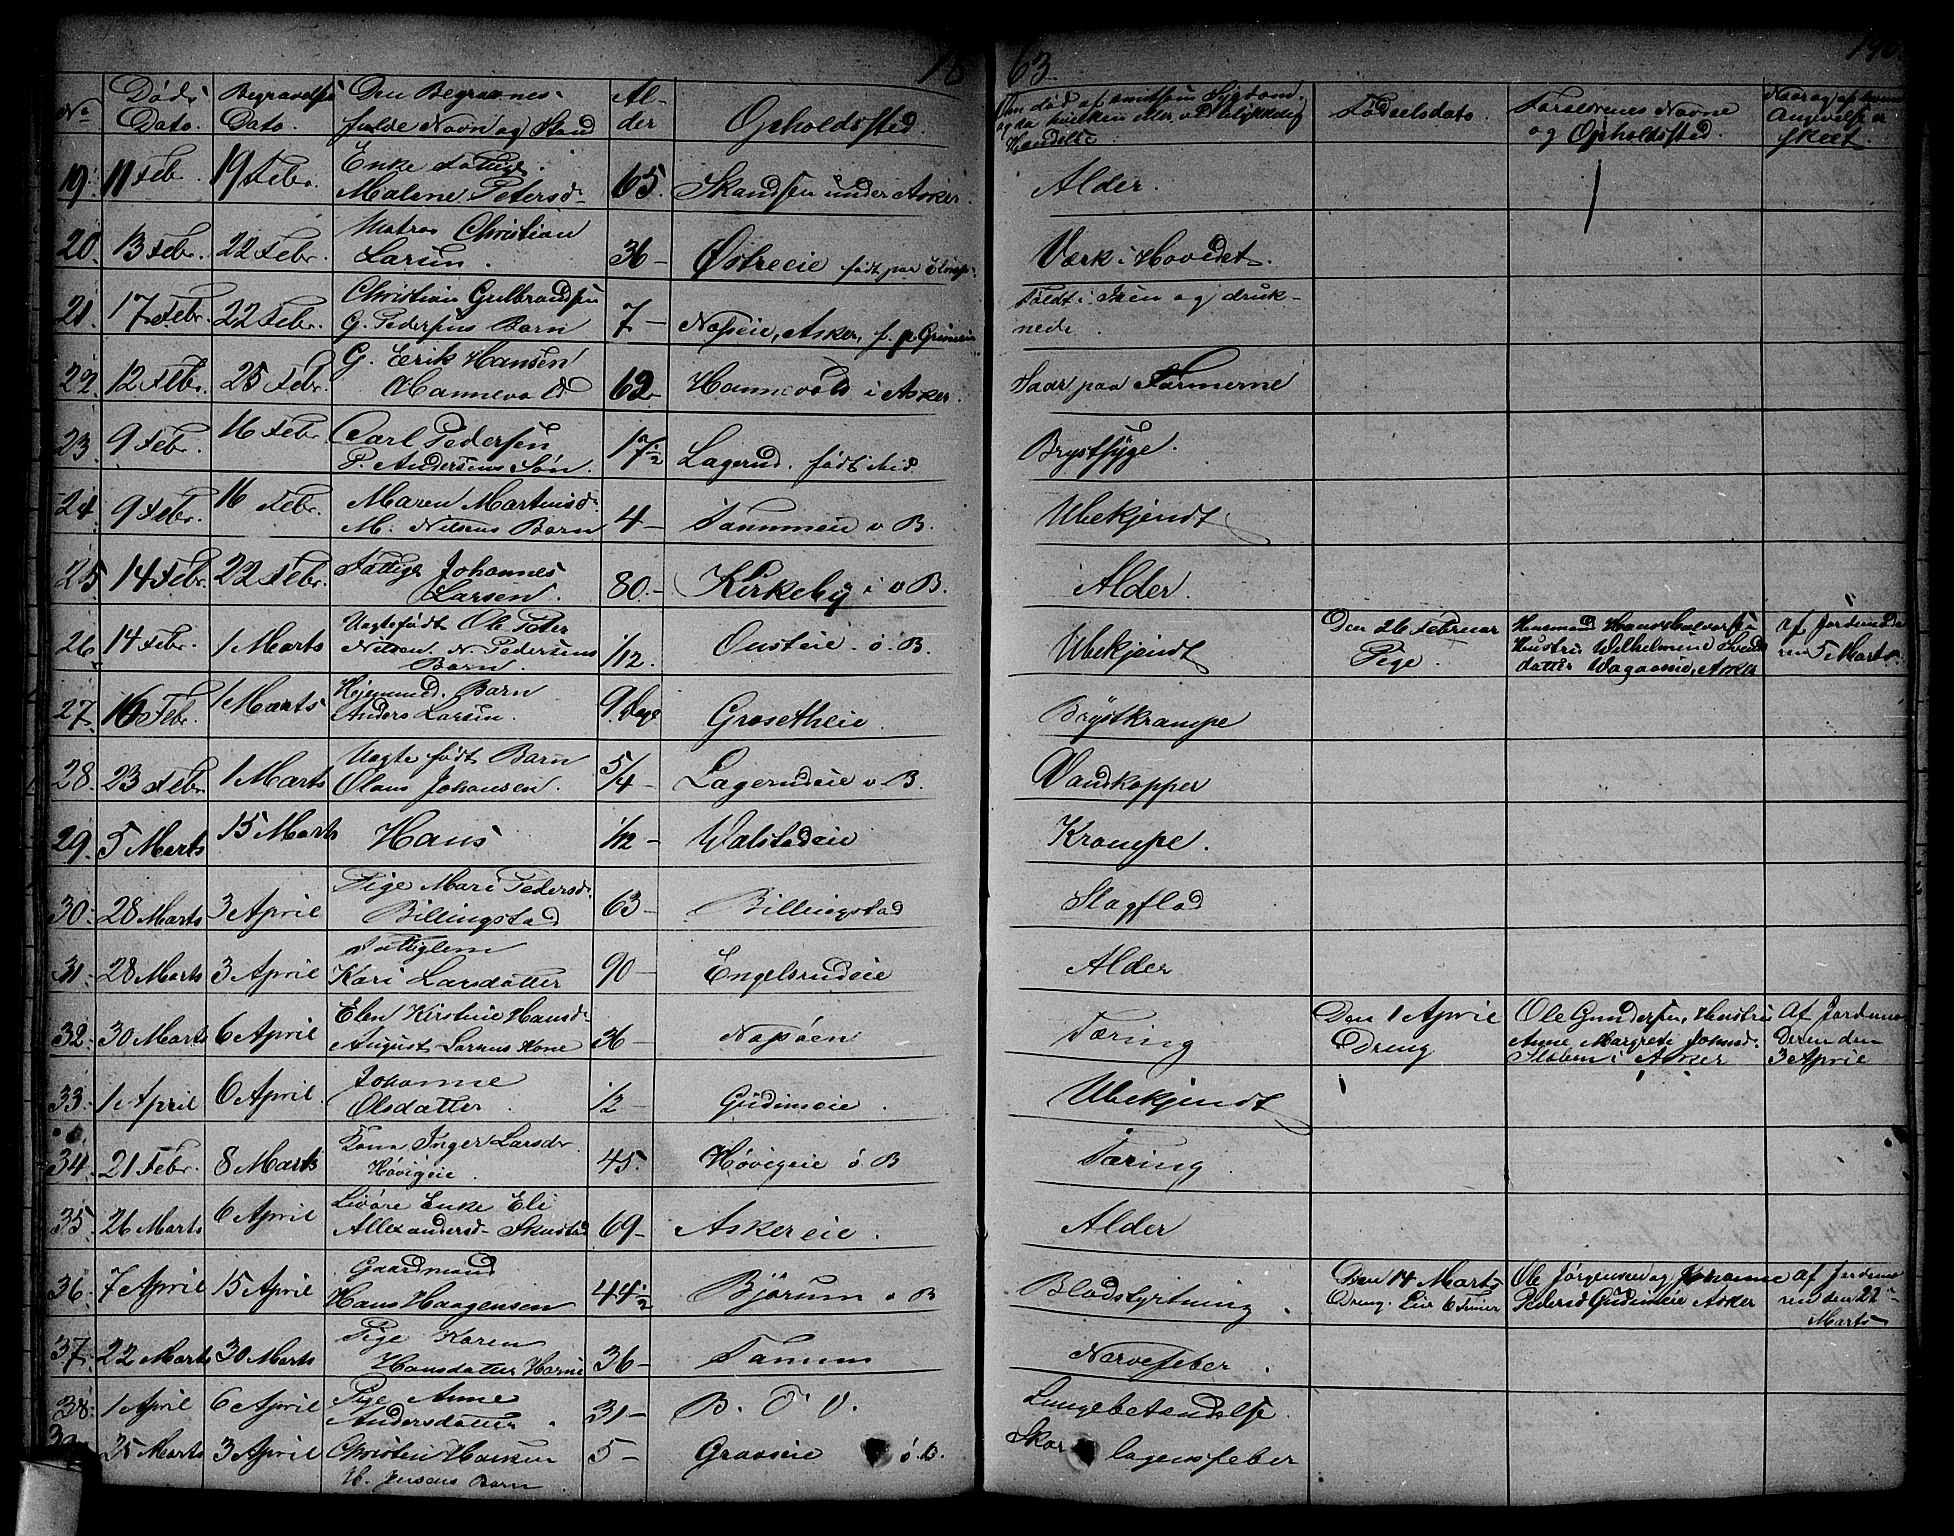 1863.
196.
No
Døds Dato.
Begravelses Dato.
Den Begravnes fulde Navn og Stand
Alder
Opholdssted.
Om død af smitsom Sygdom og da hvilken eller ved ulykkelig Hændelse
Fødselsdato.
Forældrenes Navne og Opholdssted.
Naar og af hvem Angivelse er skeet.
19. 11 Febr. 19 Febr. Enke Fattige Malene Petersd. 65. Skandsen under Asker. Alder.
20. 13 Febr. 22 Febr. Matros Christian Larsen. 36 – Østreeie født paa Værk i Hovedet.
21. 17 Febr. 22 Febr. Christian Gulbrandsen G. Pedersens Barn 7 – Næseie, Asker, f. p. Faldt i Isen og druknede.
22. 12 Febr. 25 Febr. G. Erik Hansen Hannevold 62 Hannevold i Asker. Saar paa Tarmerne
23. 9 Febr. 16 Febr. Carl Pedersen P. Andersens Søn. 17 1/2 Lagerud. født ibid Brystsyge.
24. 9 Febr. 16 Febr. Maren Martinsd. M. Nilsens Barn 4 – Tanumeie v B. Ubekjendt
25 14 Febr. 22 Febr. Fattige Johannes Larsen. 80. – Kirkeby i v B. Alder.
26 14 Febr. 1 Marts Uægtefødt Ole Peter Nilsen N. Pedersens Barn. 1/12. Ousteie ø. B. Ubekjendt Den 26 Februar Pige. Huusmand Hans Halvorsen Hustru Wilhelmine Svendsdatter, Asker af Jordemoderen 5 Marts.
27 16 Febr. 1 Marts Hjemmed. Barn Anders Larsen. 9 Dage Grosetheie. Brystkrampe
28. 23 Febr. 1 Marts Uægte født Barn Olaus Johansen. 5/4 – Lagerudeie v. B. Vandkopper
29. 5 Marts 15 Marts Hans 1/12 – Walstadeie Krampe.
30. 28 Marts 3 April Pige Mari Pedersd. Billingstad 63 – Billingstad Slagflod
31 – 28 Marts 3 April Fattiglem Kari Larsdatter 90 – Engelsrudeie Alder
32. 30 Marts 6 April Elen Kirstine Hansd. August Larsens Kone 36 – Næsøen Tæring Den 1 April Dreng Ole Gundersen, Hustru Anne Margrete Johnsd. i Asker Af Jordemoderen den 3 April
33. 1 April 6 April Johanne Olsdatter. 12 – Gudimeie. Ubekjendt
34. 21 Febr. 8 Marts Kone Inger Larsdr Høvigeie. 45. Høvigeie ø B Tæring.
35. 26 Marts 6 April Enke Eli Allexandersd. Skustad 69 – Askereie. Alder
36. 7 April 15 April Gaardmand Hans Haagensen 44 1/2 Bjørum v B Blodstyrtning. Den 14 Marts Dreng. Ole Jørgensen og Johanne Pedersd Gudimeie Asker af Jordemoderen den 22 Marts
37. 22 Marts 30 Marts Pige Karen Hansdatter 36 – Tanum Nervefeber.
38. 1 April 6 April Pige Anne Andersdatter. 31 – B. Ø V. Lungebetændelse.
39. 25 Marts 3 April Christen Hansen H. Jensens Barn 5 – Graaeie ø. B. Skarlagensfeber